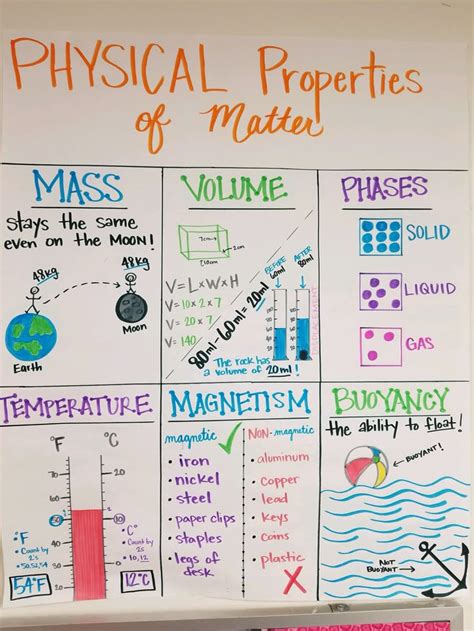 PHYSICAL Properties
of Matter
MASS
stays the same
even on the Moon!
48kg
48kg
Earth
Moon
VOLUME
7cm
2cm
10cm
V = L x W x H
V = 10 x 2 x 7
V = 20 x 7
V = 140
80ml - 60ml = 20ml
BEFORE
60ml
AFTER
80ml
DISPLACEMENT
The rock has
a volume of 20ml!
PHASES
SOLID
LIQUID
GAS
TEMPERATURE
°F
°C
20
10
50
°F
• Count by
2's
• 50, 52, 54
54°F
C°
• Count by
2s
• 10, 12
12°C
MAGNETISM
magnetic
• iron
• nickel
• steel
• paper clips
• staples
• legs of
desk
NON-magnetic
• aluminum
• copper
• lead
• keys
• coins
• plastic
BUOYANCY
the ability to float!
BUOYANT!
NOT
BUOYANT